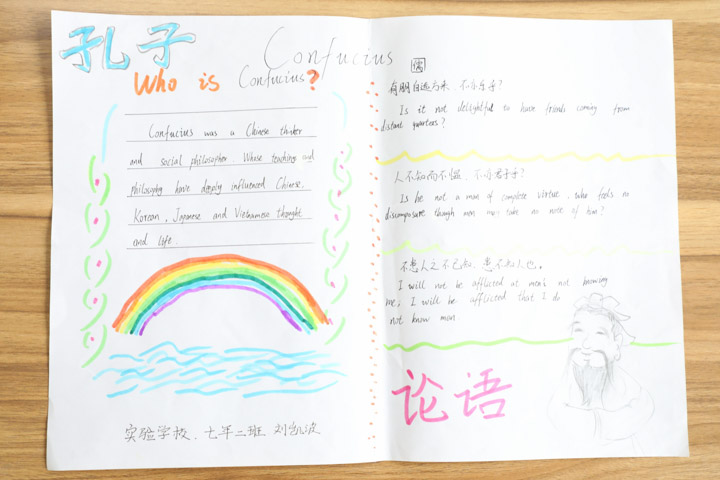 孔子
Confucius
Who is Confucius?
Confucius was a Chinese thinker
and social philosopher. Whose teachings and
philosophy have deeply influenced Chinese,
Korean, Japanese and Vietnamese thought
and life.
实验学校、七年二班 刘凯波
儒
有朋自远方来,不亦乐乎?
Is it not delightful to have friends coming from
distant quarters?
人不知而不愠,不亦君子乎?
Is he not a man of complete virtue, who feels no
discomposure though men may take no note of him?
不患人之不己知,患不知人也。
I will not be afflicted at men's not knowing
me; I will be afflicted that I do
not know men
论语